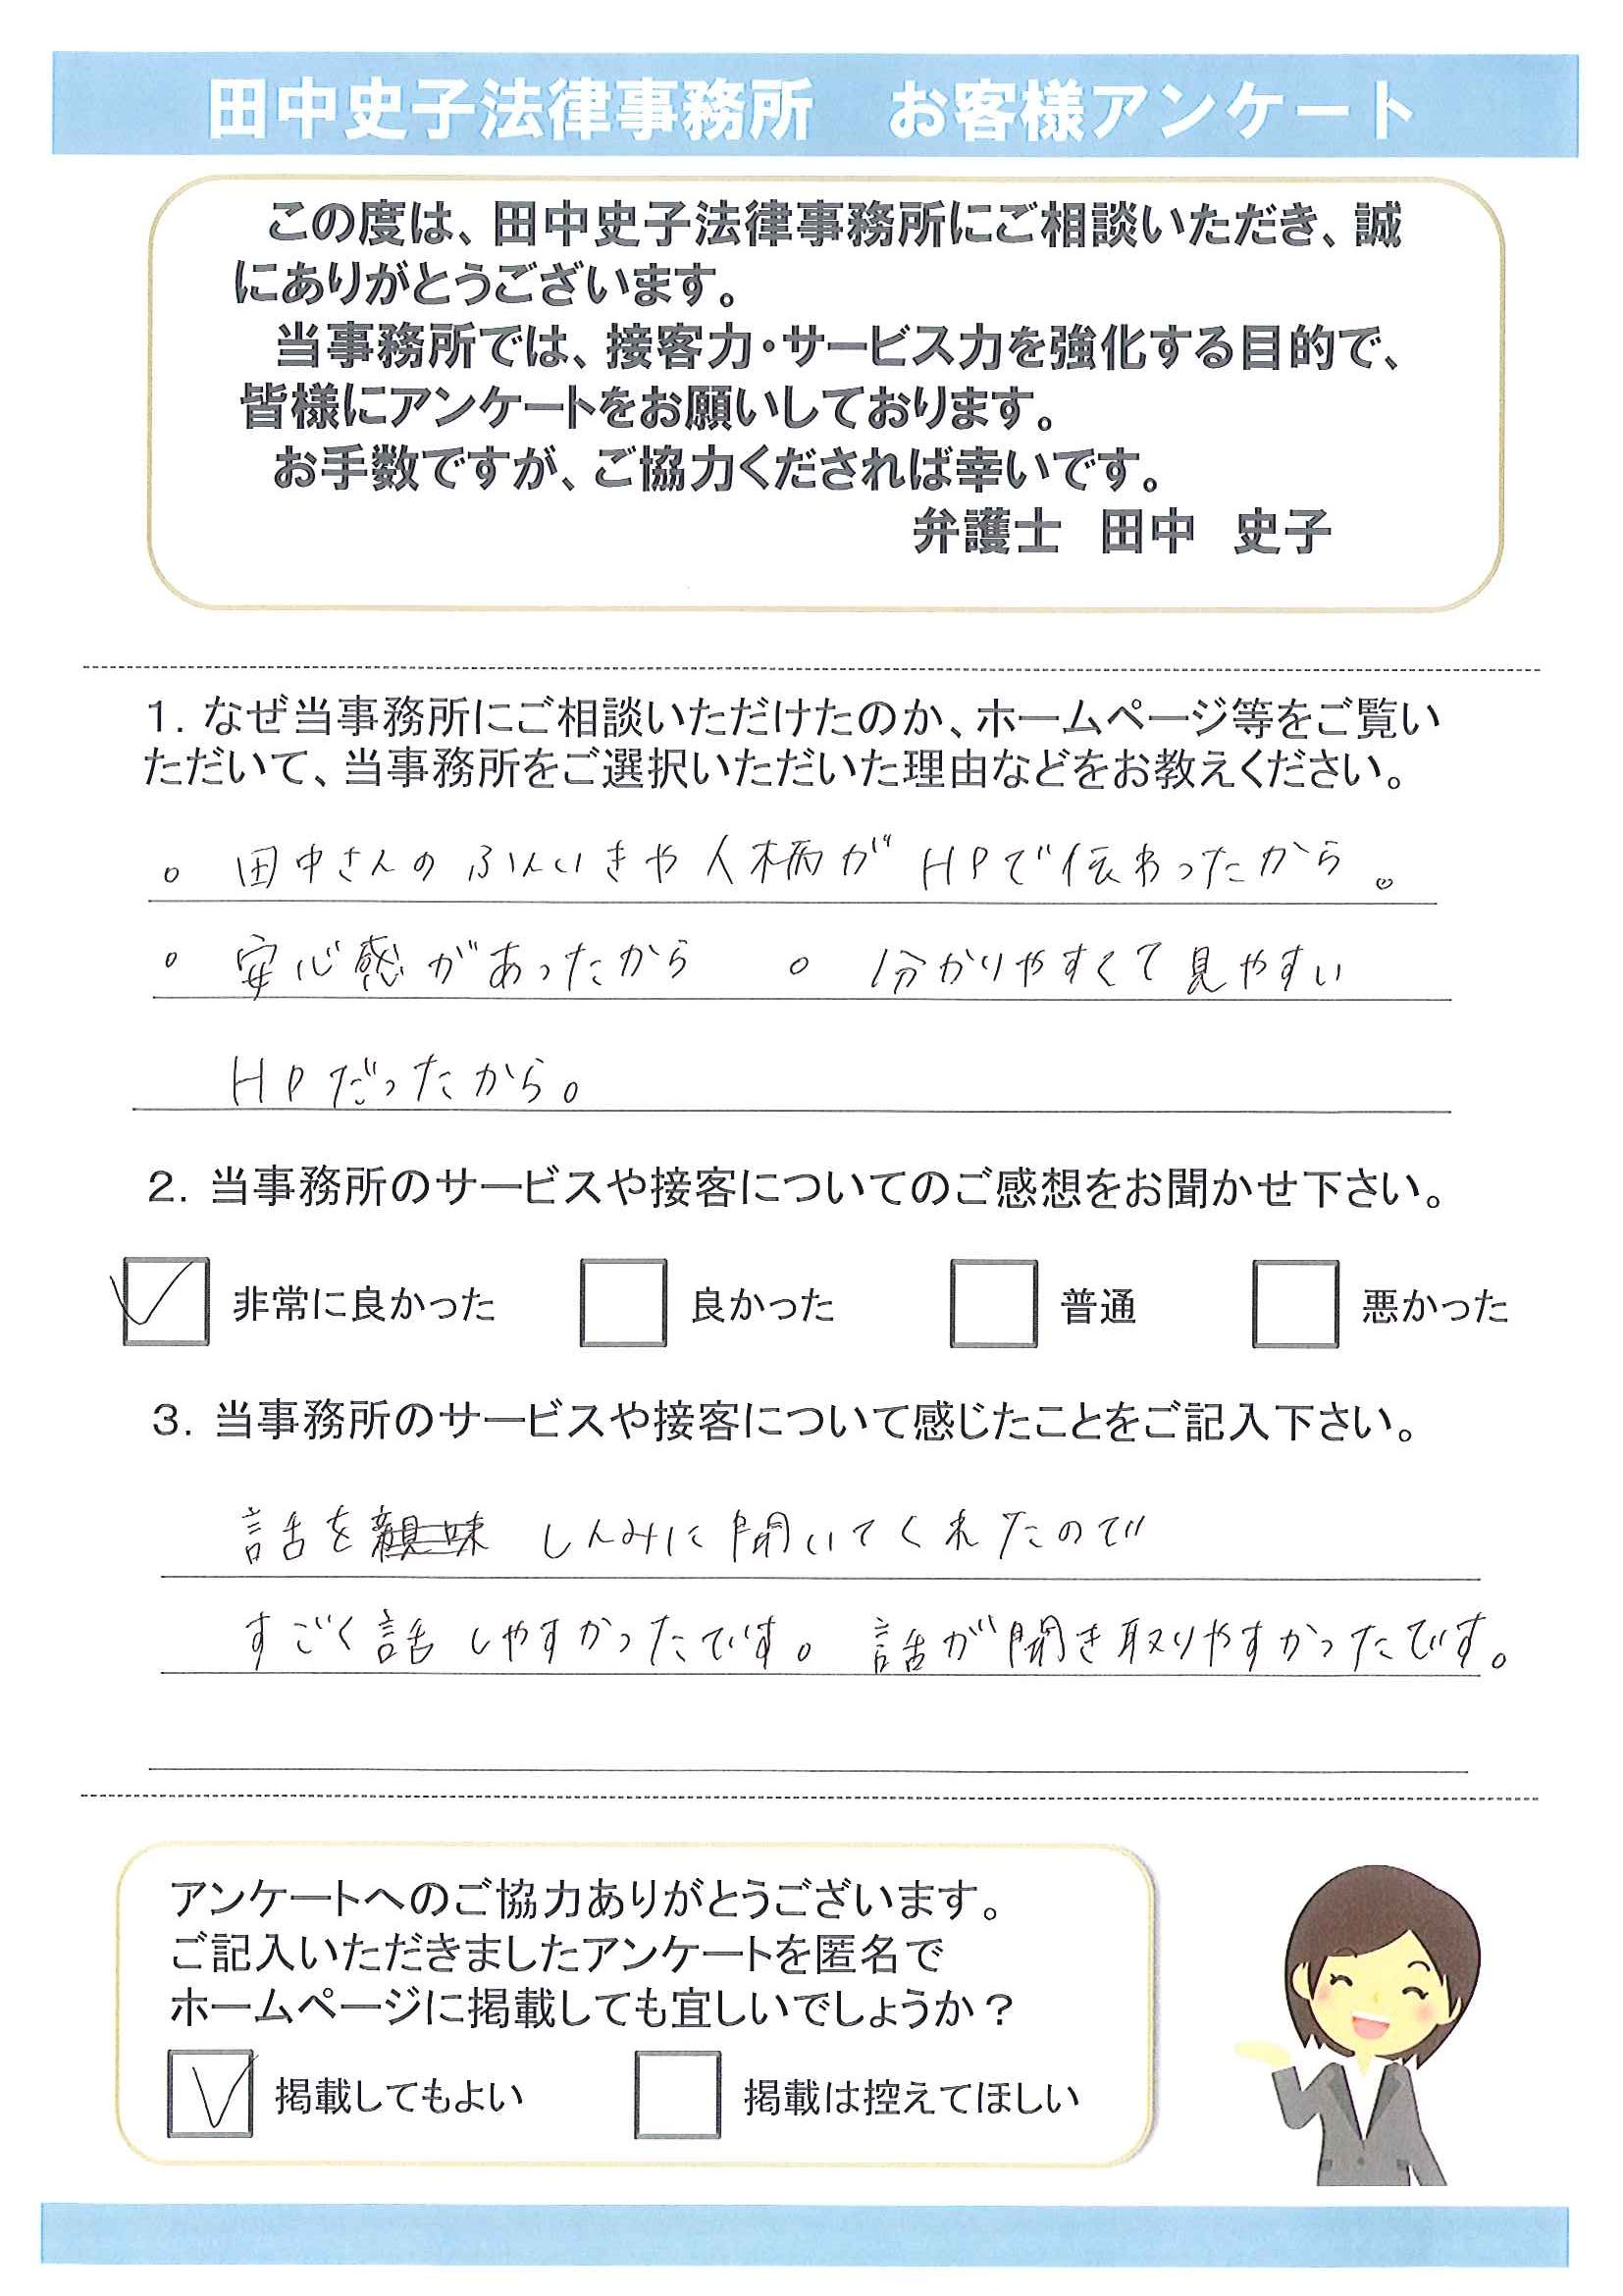 田中史子法律事務所　お客様アンケート
この度は、田中史子法律事務所にご相談いただき、誠
にありがとうございます。
当事務所では、接客力・サービス力を強化する目的で、
皆様にアンケートをお願いしております。
お手数ですが、ご協力くだされば幸いです。
弁護士　田中　史子
1. なぜ当事務所にご相談いただけたのか、ホームページ等をご覧い
ただいて、当事務所をご選択いただいた理由などをお教えください。
。田中さんのふんいきや人柄がHPで伝わったから。
。安心感があったから　。分かりやすくて見やすい
HPだったから。
2. 当事務所のサービスや接客についてのご感想をお聞かせ下さい。
非常に良かった　良かった　普通　悪かった
3. 当事務所のサービスや接客について感じたことをご記入下さい。
話を親味 しんみに聞いてくれたので
すごく話しやすかったです。話が聞き取りやすかったです。
アンケートへのご協力ありがとうございます。
ご記入いただきましたアンケートを匿名で
ホームページに掲載しても宜しいでしょうか？
掲載してもよい　掲載は控えてほしい